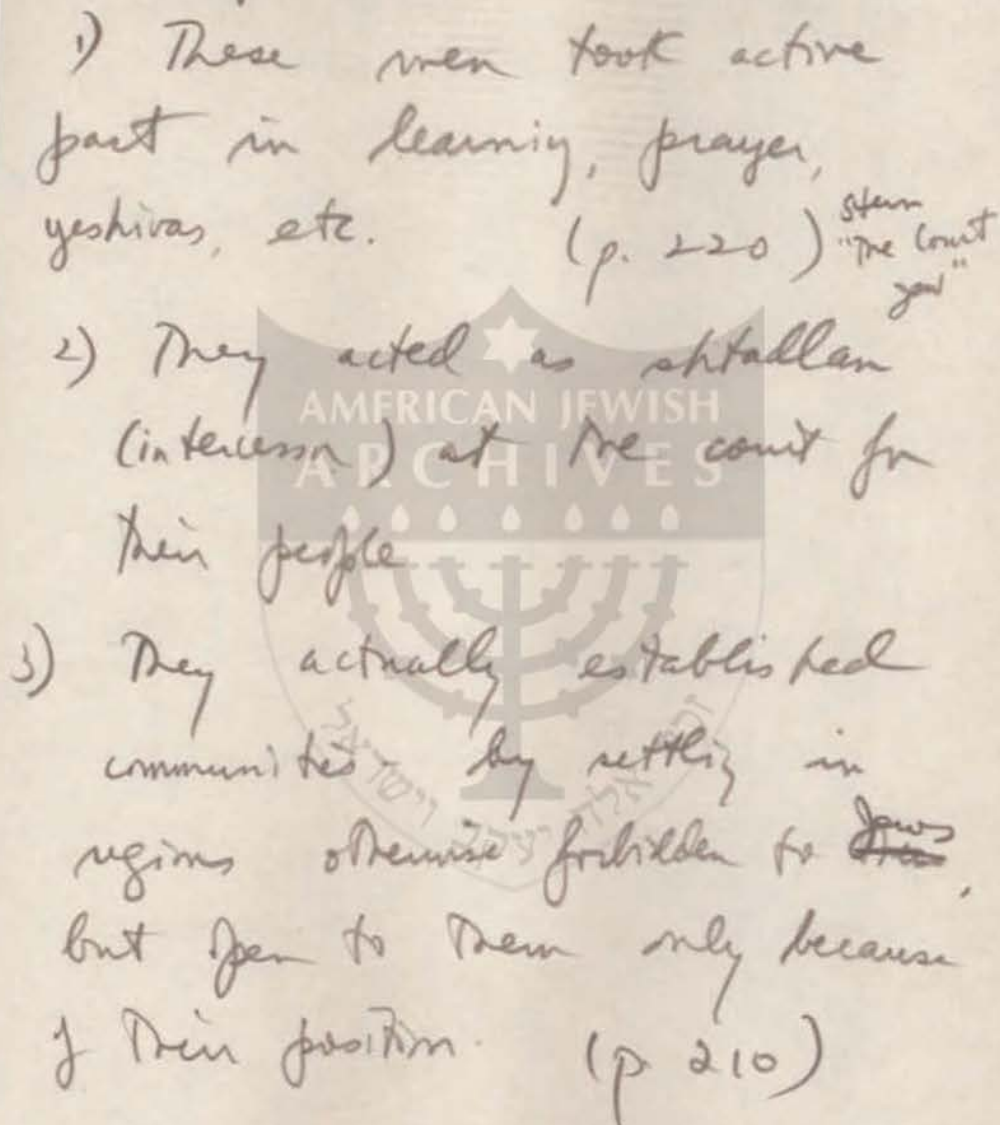 1) These men took active
part in learning, prayer,
yeshivas, etc. (p. 220) Stern
"The Court
Jew"
2) They acted as shtadlan
(intercessor) at the court for
their people
3) They actually established
communities - by settling in
regions otherwise forbidden to Jews,
but open to them only because
of their position. (p 210)
AMERICAN JEWISH
ARCHIVES